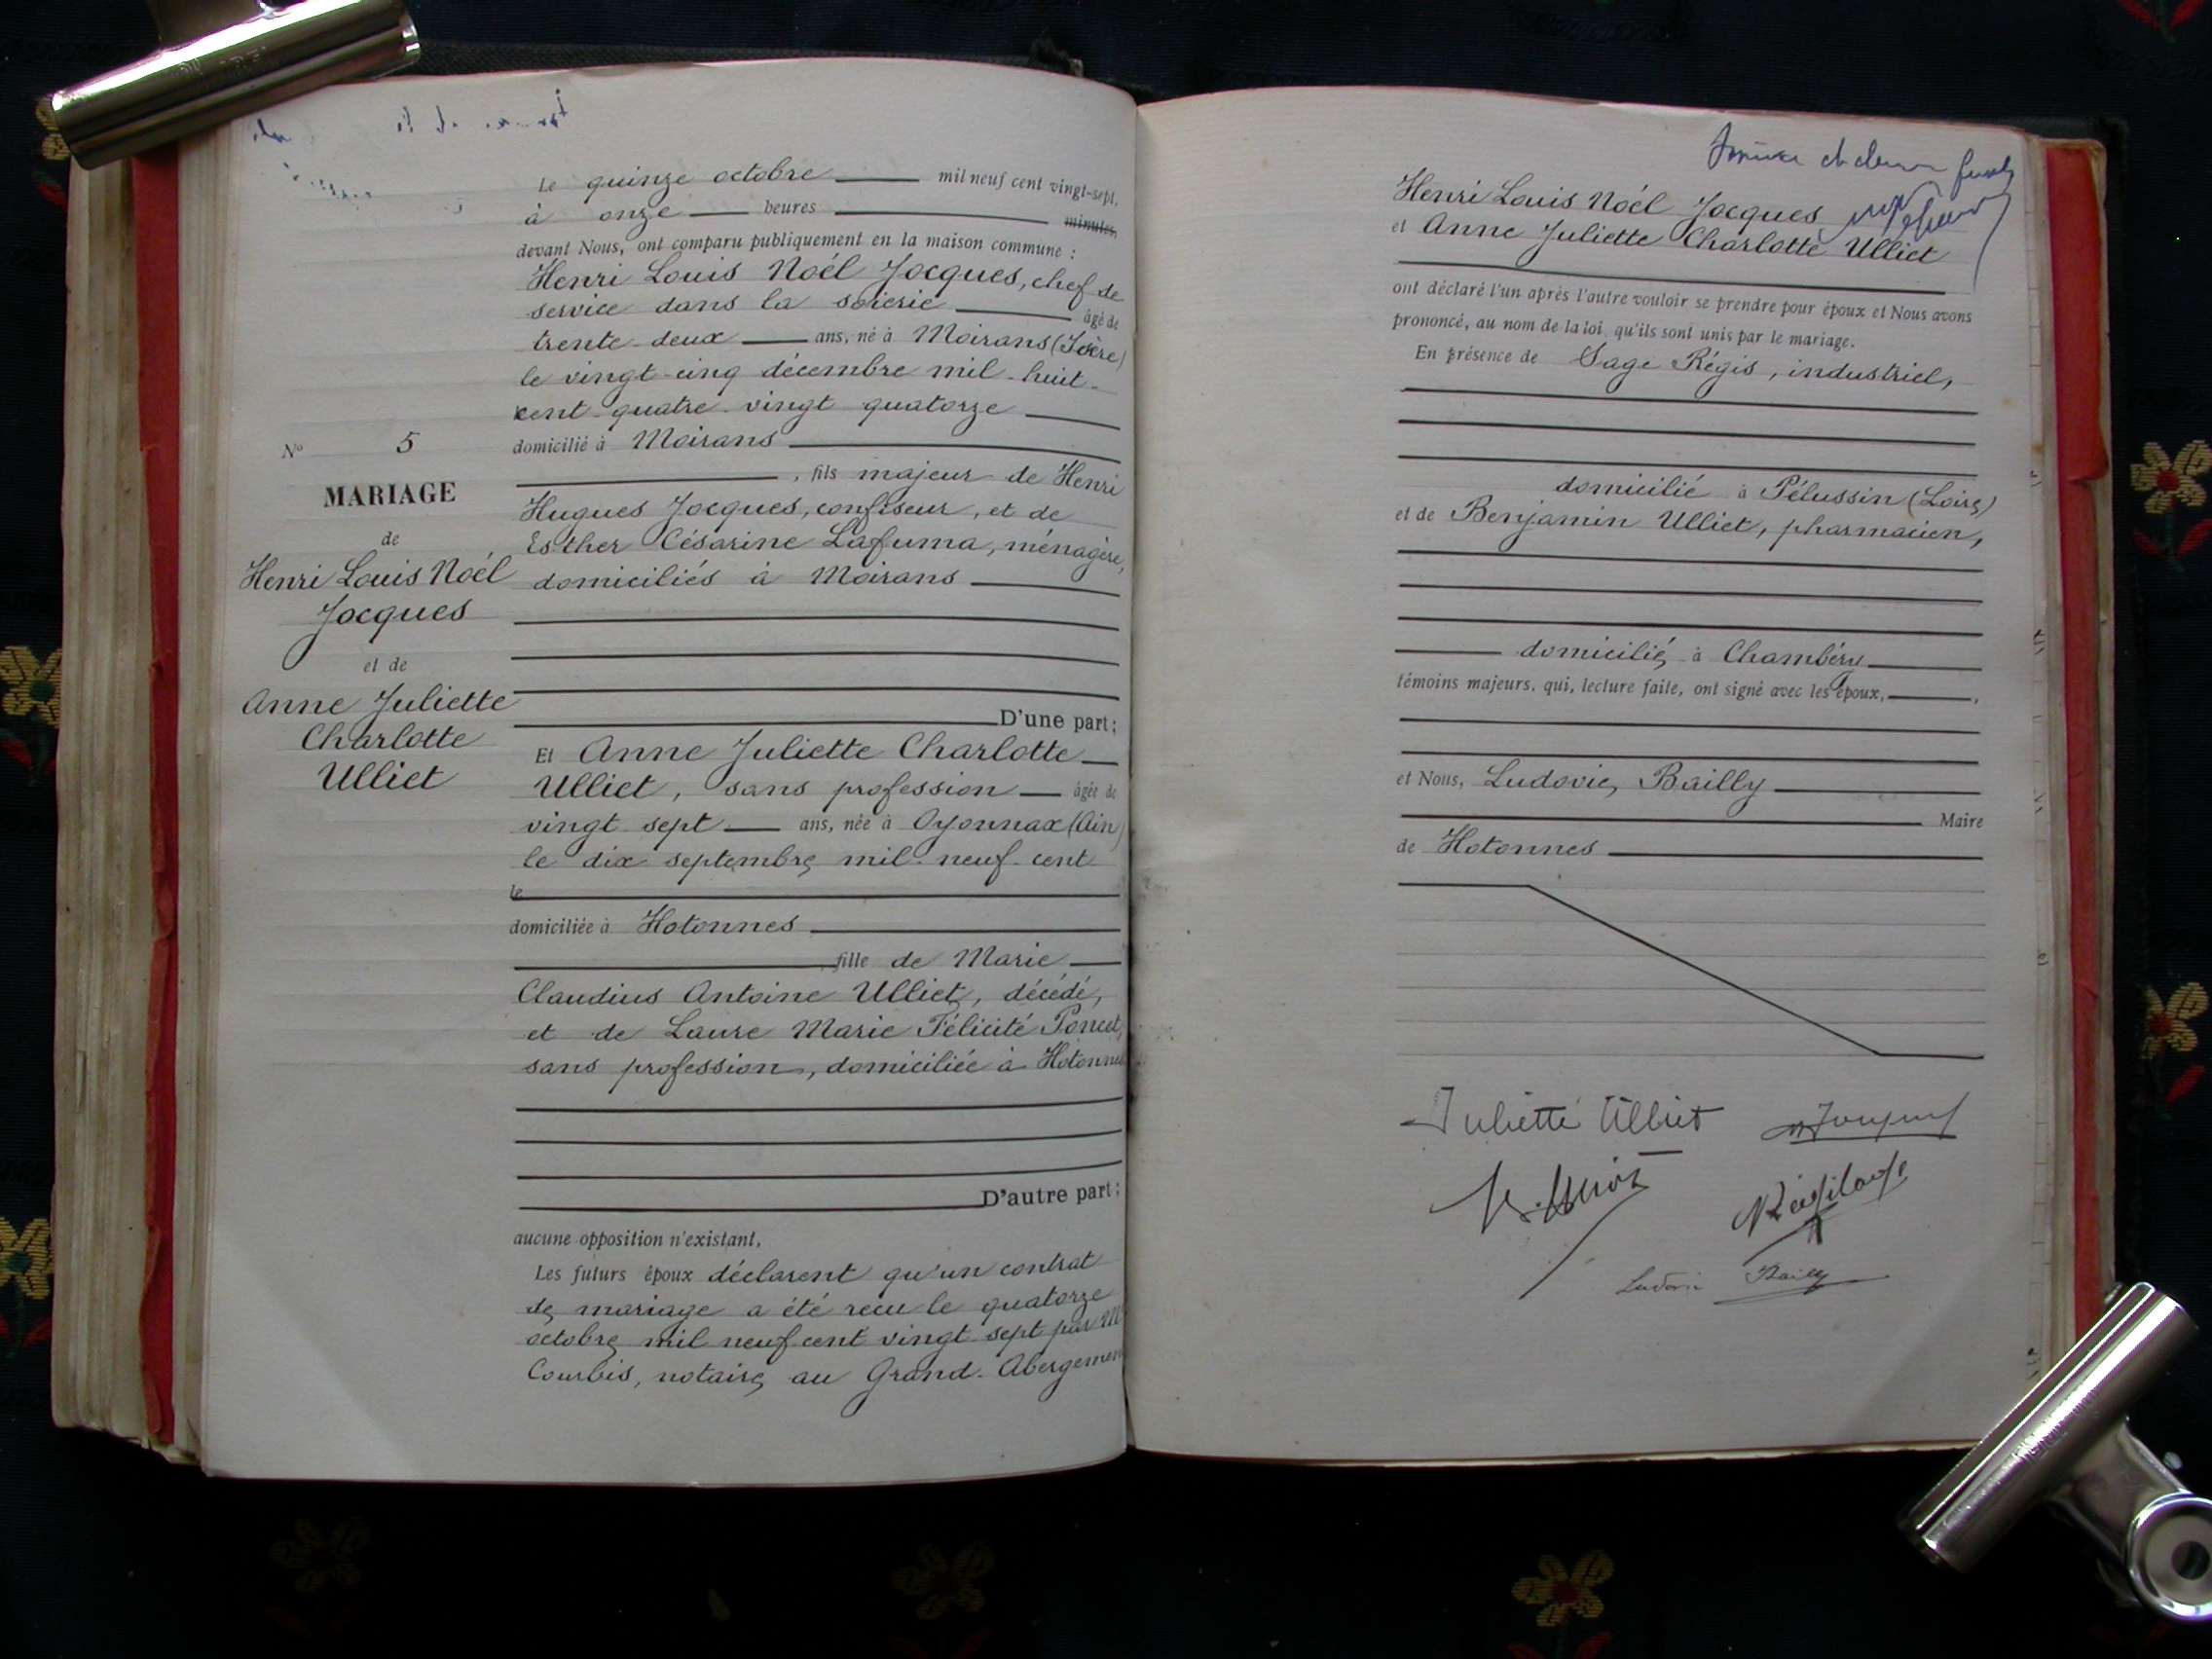 Le quinze octobre mil neuf cent vingt-sept,
à onze heures minutes,
devant Nous, ont comparu publiquement en la maison commune :
Henri Louis Noél Jocques, chef de
service dans la soierie âgé de
trente-deux ans, né à Moirans (Isère)
le vingt-cinq décembre mil-huit-
cent-quatre-vingt quatorze
domicilié à Moirans
, fils majeur de Henri
Hugues Jocques, confiseur, et de
Esther Césarine Lafuma, ménagère,
domiciliés à Moirans
D'une part ;
Et Anne Juliette Charlotte
Ulliet, sans profession âgée de
vingt-sept ans, née à Oyonnax (Ain)
le dix septembre mil-neuf-cent
le
domiciliée à Hotonnes
fille de Marie
Claudius Antoine Ulliet, décédé,
et de Laure Marie Félicité Poncet,
sans profession, domiciliée à Hotonnes
D'autre part ;
aucune opposition n'existant,
Les futurs époux déclarent qu'un contrat
de mariage a été recu le quatorze
octobre mil neuf cent vingt sept par Me
Courbis, notaire au Grand-Abergemen
No 5
MARIAGE
de
Henri Louis Noél
Jocques
et de
Anne Juliette
Charlotte
Ulliet
Henri Louis Noél Jocques
et Anne Juliette Charlotte Ulliet
ont déclaré l'un après l'autre vouloir se prendre pour époux et Nous avons
prononcé, au nom de la loi, qu'ils sont unis par le mariage.
En présence de Sage Régis, industriel,
domicilié à Pélussin (Loire)
et de Benjamin Ulliet, pharmacien,
domicilié à Chambéry
témoins majeurs, qui, lecture faite, ont signé avec les époux,
et Nous, Ludovic Bailly
Maire
de Hotonnes
Juliette Ulliet
Ludovic Bailly